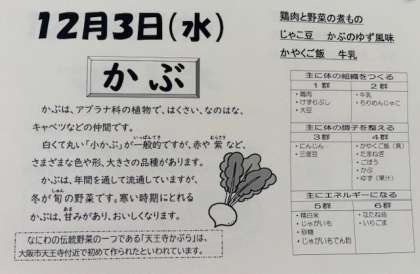 12月3日(水)
かぶ
かぶは、アブラナ科の植物で、はくさい、なのはな、
キャベツなどの仲間です。
いっぱんてき むらさき
白くて丸い「小かぶ」が一般的ですが、赤や紫など、
さまざまな色や形、大きさの品種があります。
かぶは、年間を通して流通していますが、
しゅん
冬が旬の野菜です。寒い時期にとれる
かぶは、甘みがあり、おいしくなります。
なにわの伝統野菜の一つである「天王寺かぶら」は、
大阪市天王寺付近で初めて作られたといわれています。
鶏肉と野菜の煮もの
じゃこ豆 かぶのゆず風味
かやくご飯 牛乳
主に体の組織をつくる
1群 2群
・鶏肉 ・牛乳
・けずりぶし ・ちりめんじゃこ
・大豆
主に体の調子を整える
3群 4群
・にんじん ・かやくご飯(具)
・三度豆 ・たまねぎ
・ごぼう
・かぶ
・ゆず(果汁)
主にエネルギーになる
5群 6群
・精白米 ・なたね油
・じゃがいも ・いりごま
・砂糖
・じゃがいもでん粉